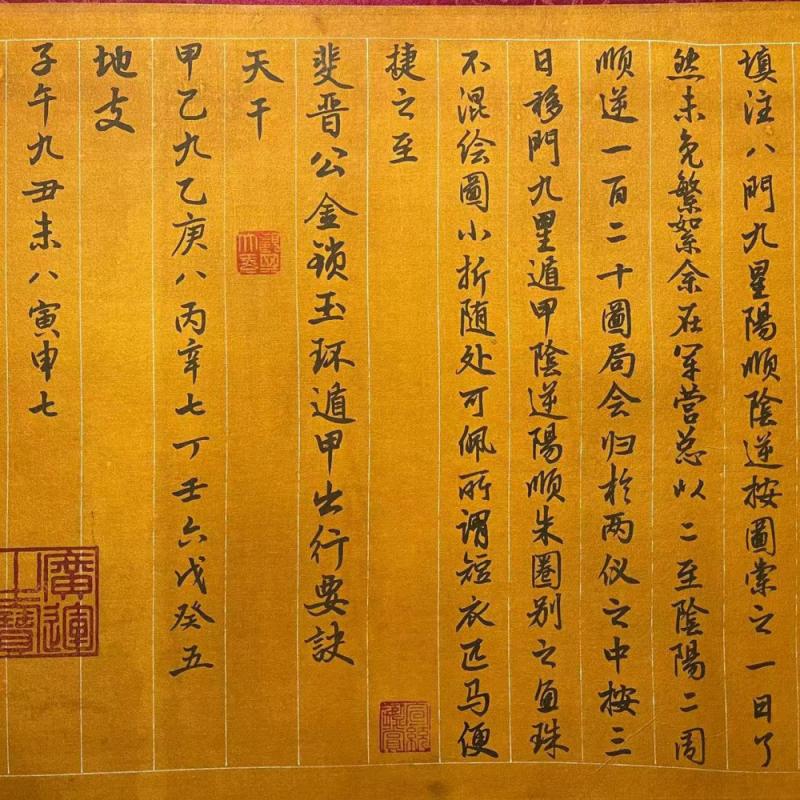 填注八門九星陽順陰逆按圖索之一目了
然未免繁絮余在军营总以二至陰陽二周
順逆一百二十圖局会归於两仪之中按三
日移門九里遁甲陰逆陽順朱圈别之鱼珠
不混绘圖小折随处可佩所谓短衣匹马便
捷之至
斐晋公金锁玉环遁甲出行要訣
天干
甲乙九乙庚八丙辛七丁壬六戊癸五
地支
子午九丑未八寅申七
廣運之寶
宣統鑒賞